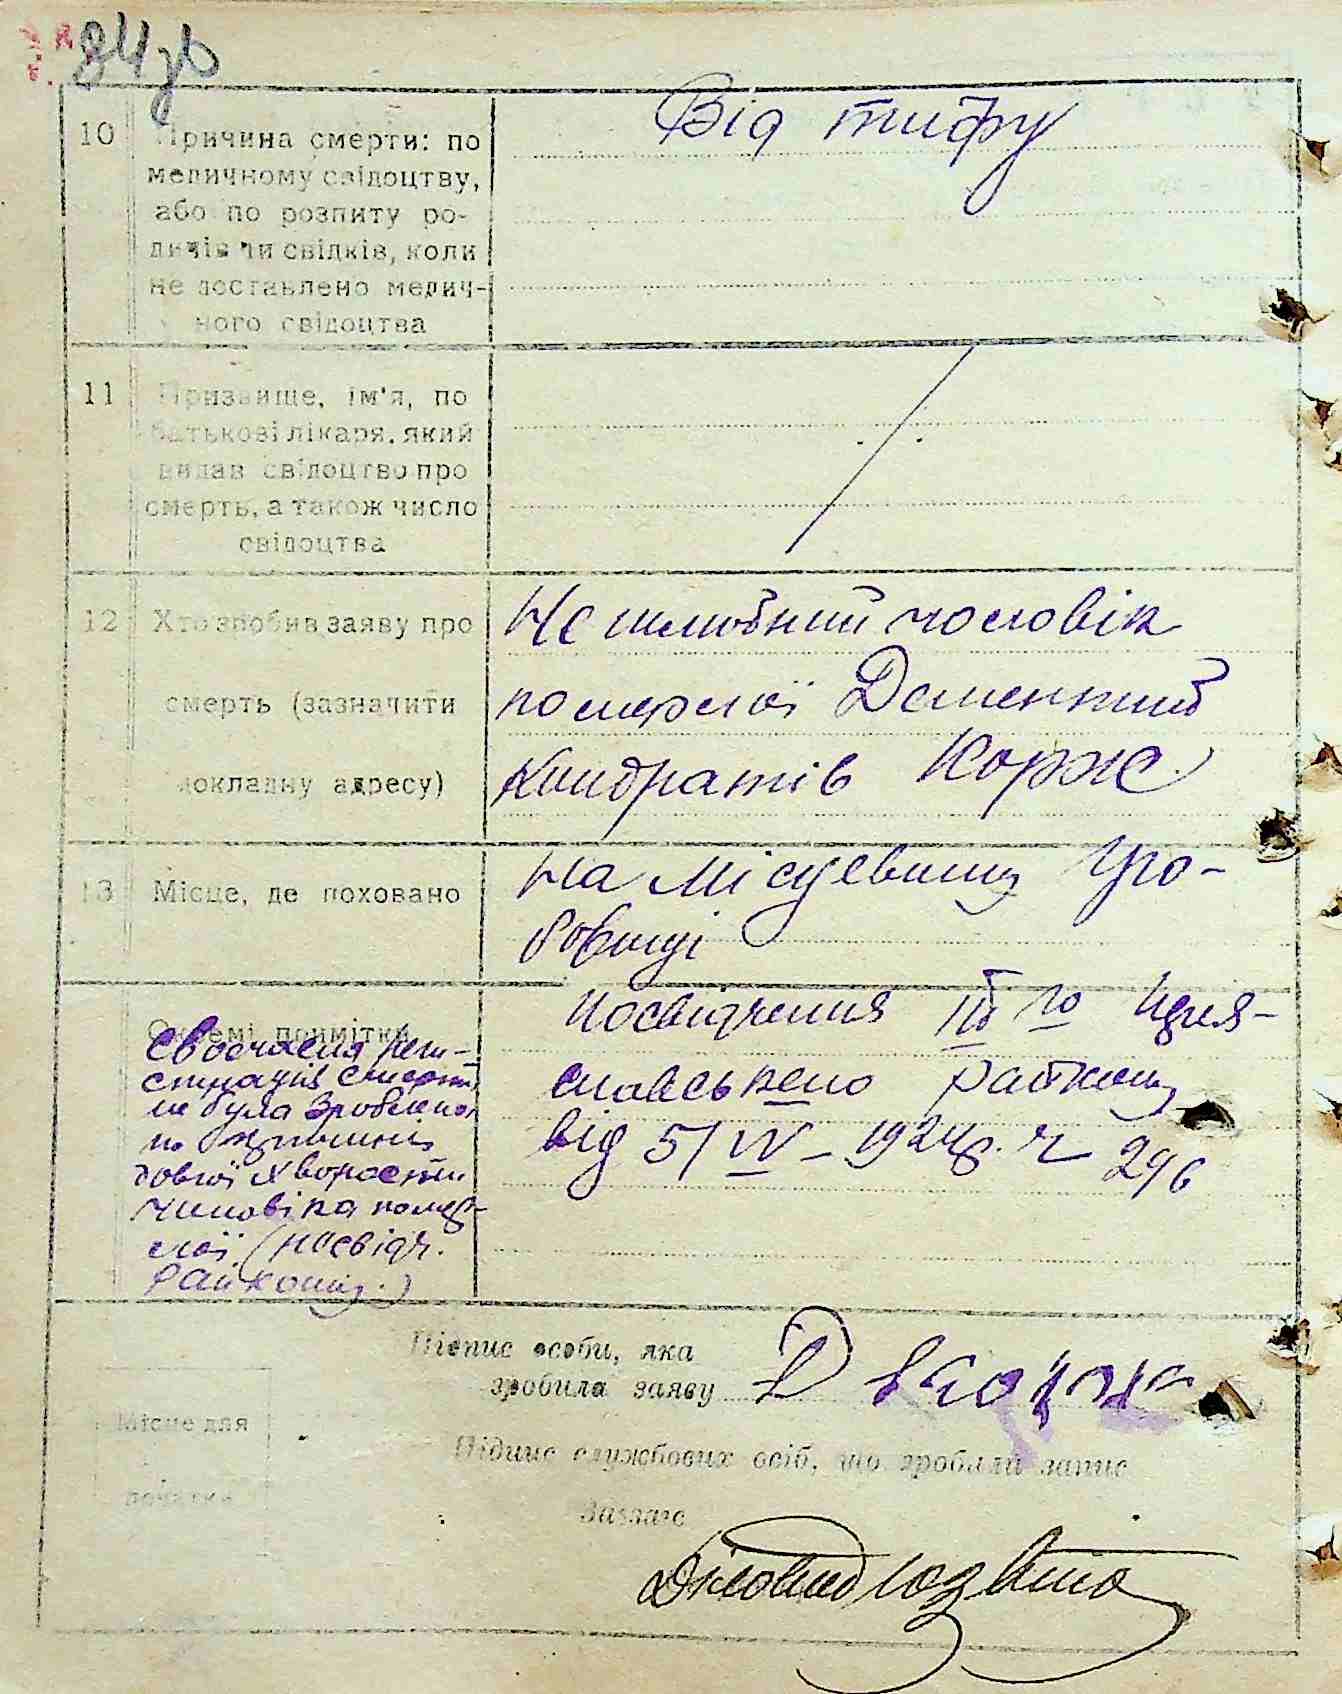 84зв
10 Причина смерти: по
медичному свідоцтву,
або по розпиту ро-
дичів чи свідків, коли
не доставлено медич-
ного свідоцтва
Від тифу
11 Призвище, ім'я, по
батькові лікаря, який
видав свідоцтво про
смерть, а також число
свідоцтва
12 Хто зробив заяву про
смерть (зазначити
докладну адресу)
Не шлюбний чоловік
померлої Дементий
Кондратів Корж
13 Місце, де поховано
На місцевому гро-
бовищі
Окремі примітки
Своєчасна реги-
страція смерти
не була зроблена
по причині
довгої хворости
чиловіка помер-
лої (посвідч.
Райкому.)
Посвідчення ІІІ го
славського Райкому
від 5/IV – 1924р. ч 296
Підпис особи, яка
зробила заяву Д Корж
Місце для
печатки
Підпис службових осіб, що зробили запис
Завзагс
Діловод